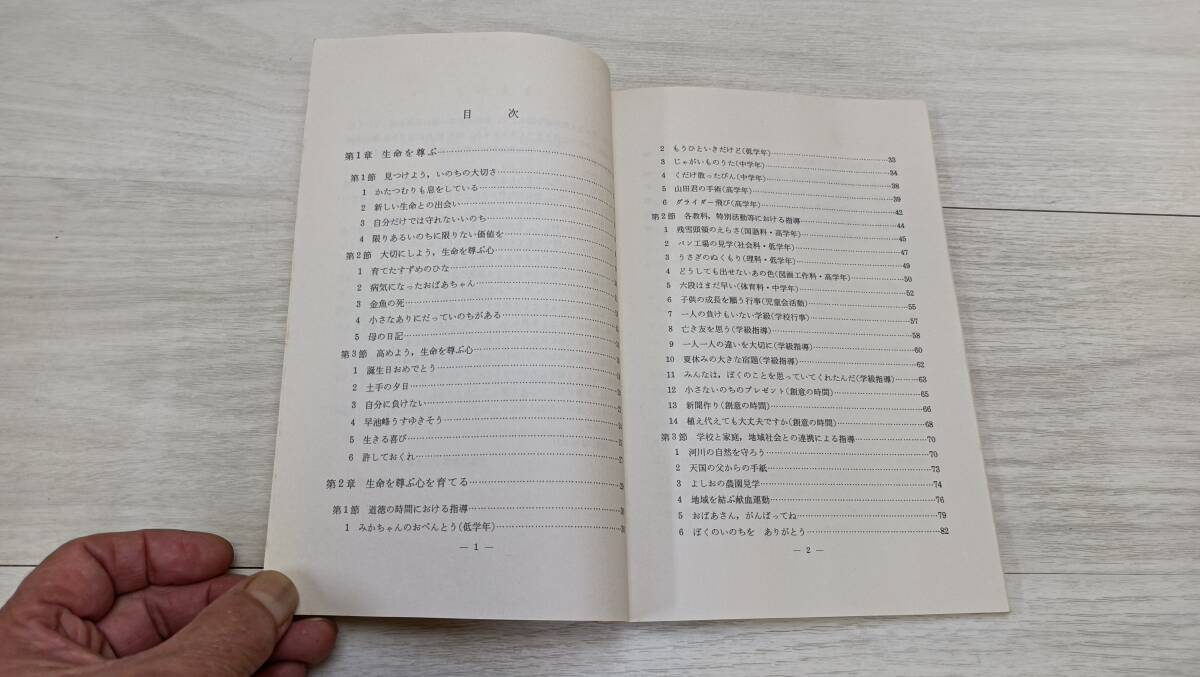 目 次
第1章 生命を尊ぶ
第1節 見つけよう，いのちの大切さ
1 かたつむりも息をしている
2 新しい生命との出会い
3 自分だけでは守れないいのち
4 限りあるいのちに限りない価値を
第2節 大切にしよう，生命を尊ぶ心
1 育てたすずめのひな
2 病気になったおばあちゃん
3 金魚の死
4 小さなありにだっていのちがある
5 母の日記
第3節 高めよう，生命を尊ぶ心
1 誕生日おめでとう
2 土手の夕日
3 自分に負けない
4 早池峰うすゆきそう
5 生きる喜び
6 許しておくれ
第2章 生命を尊ぶ心を育てる
第1節 道徳の時間における指導
1 みかちゃんのおべんとう(低学年)
— 1 —
2 もうひといきだけど(低学年) 33
3 じゃがいものうた(中学年) 34
4 くだけ散ったびん(中学年) 38
5 山田君の手術(高学年) 39
6 グライダー飛び(高学年) 42
第2節 各教科，特別活動等における指導 44
1 残雪頭領のえらさ(国語科・高学年) 45
2 パン工場の見学(社会科・低学年) 47
3 うさぎのぬくもり(理科・低学年) 49
4 どうしても出せないあの色(図画工作科・高学年) 50
5 六段はまだ早い(体育科・中学年) 52
6 子供の成長を願う行事(児童会活動) 55
7 一人の負けもいない学級(学校行事) 57
8 亡き友を思う(学級指導) 58
9 一人一人の違いを大切に(学級指導) 60
10 夏休みの大きな宿題(学級指導) 62
11 みんなは，ぼくのことを思っていてくれたんだ(学級指導) 63
12 小さないのちのプレゼント(創意の時間) 65
13 新聞作り(創意の時間) 66
14 植え代えても大丈夫ですか(創意の時間) 68
第3節 学校と家庭，地域社会との連携による指導 70
1 河川の自然を守ろう 70
2 天国の父からの手紙 73
3 よしおの農園見学 74
4 地域を結ぶ献血運動 76
5 おばあさん，がんばってね 79
6 ぼくのいのちを ありがとう 82
— 2 —